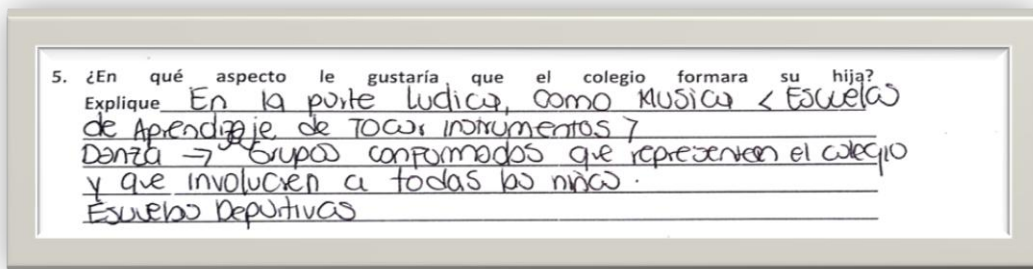 5. ¿En qué aspecto le gustaría que el colegio formara su hija?
Explique En la parte ludica, como Musica < Escuelas
de Aprendizaje de Tocar instrumentos >
Danza → Grupos conformados que representen el colegio
y que involucren a todas las niñas.
Escuelas Deportivas